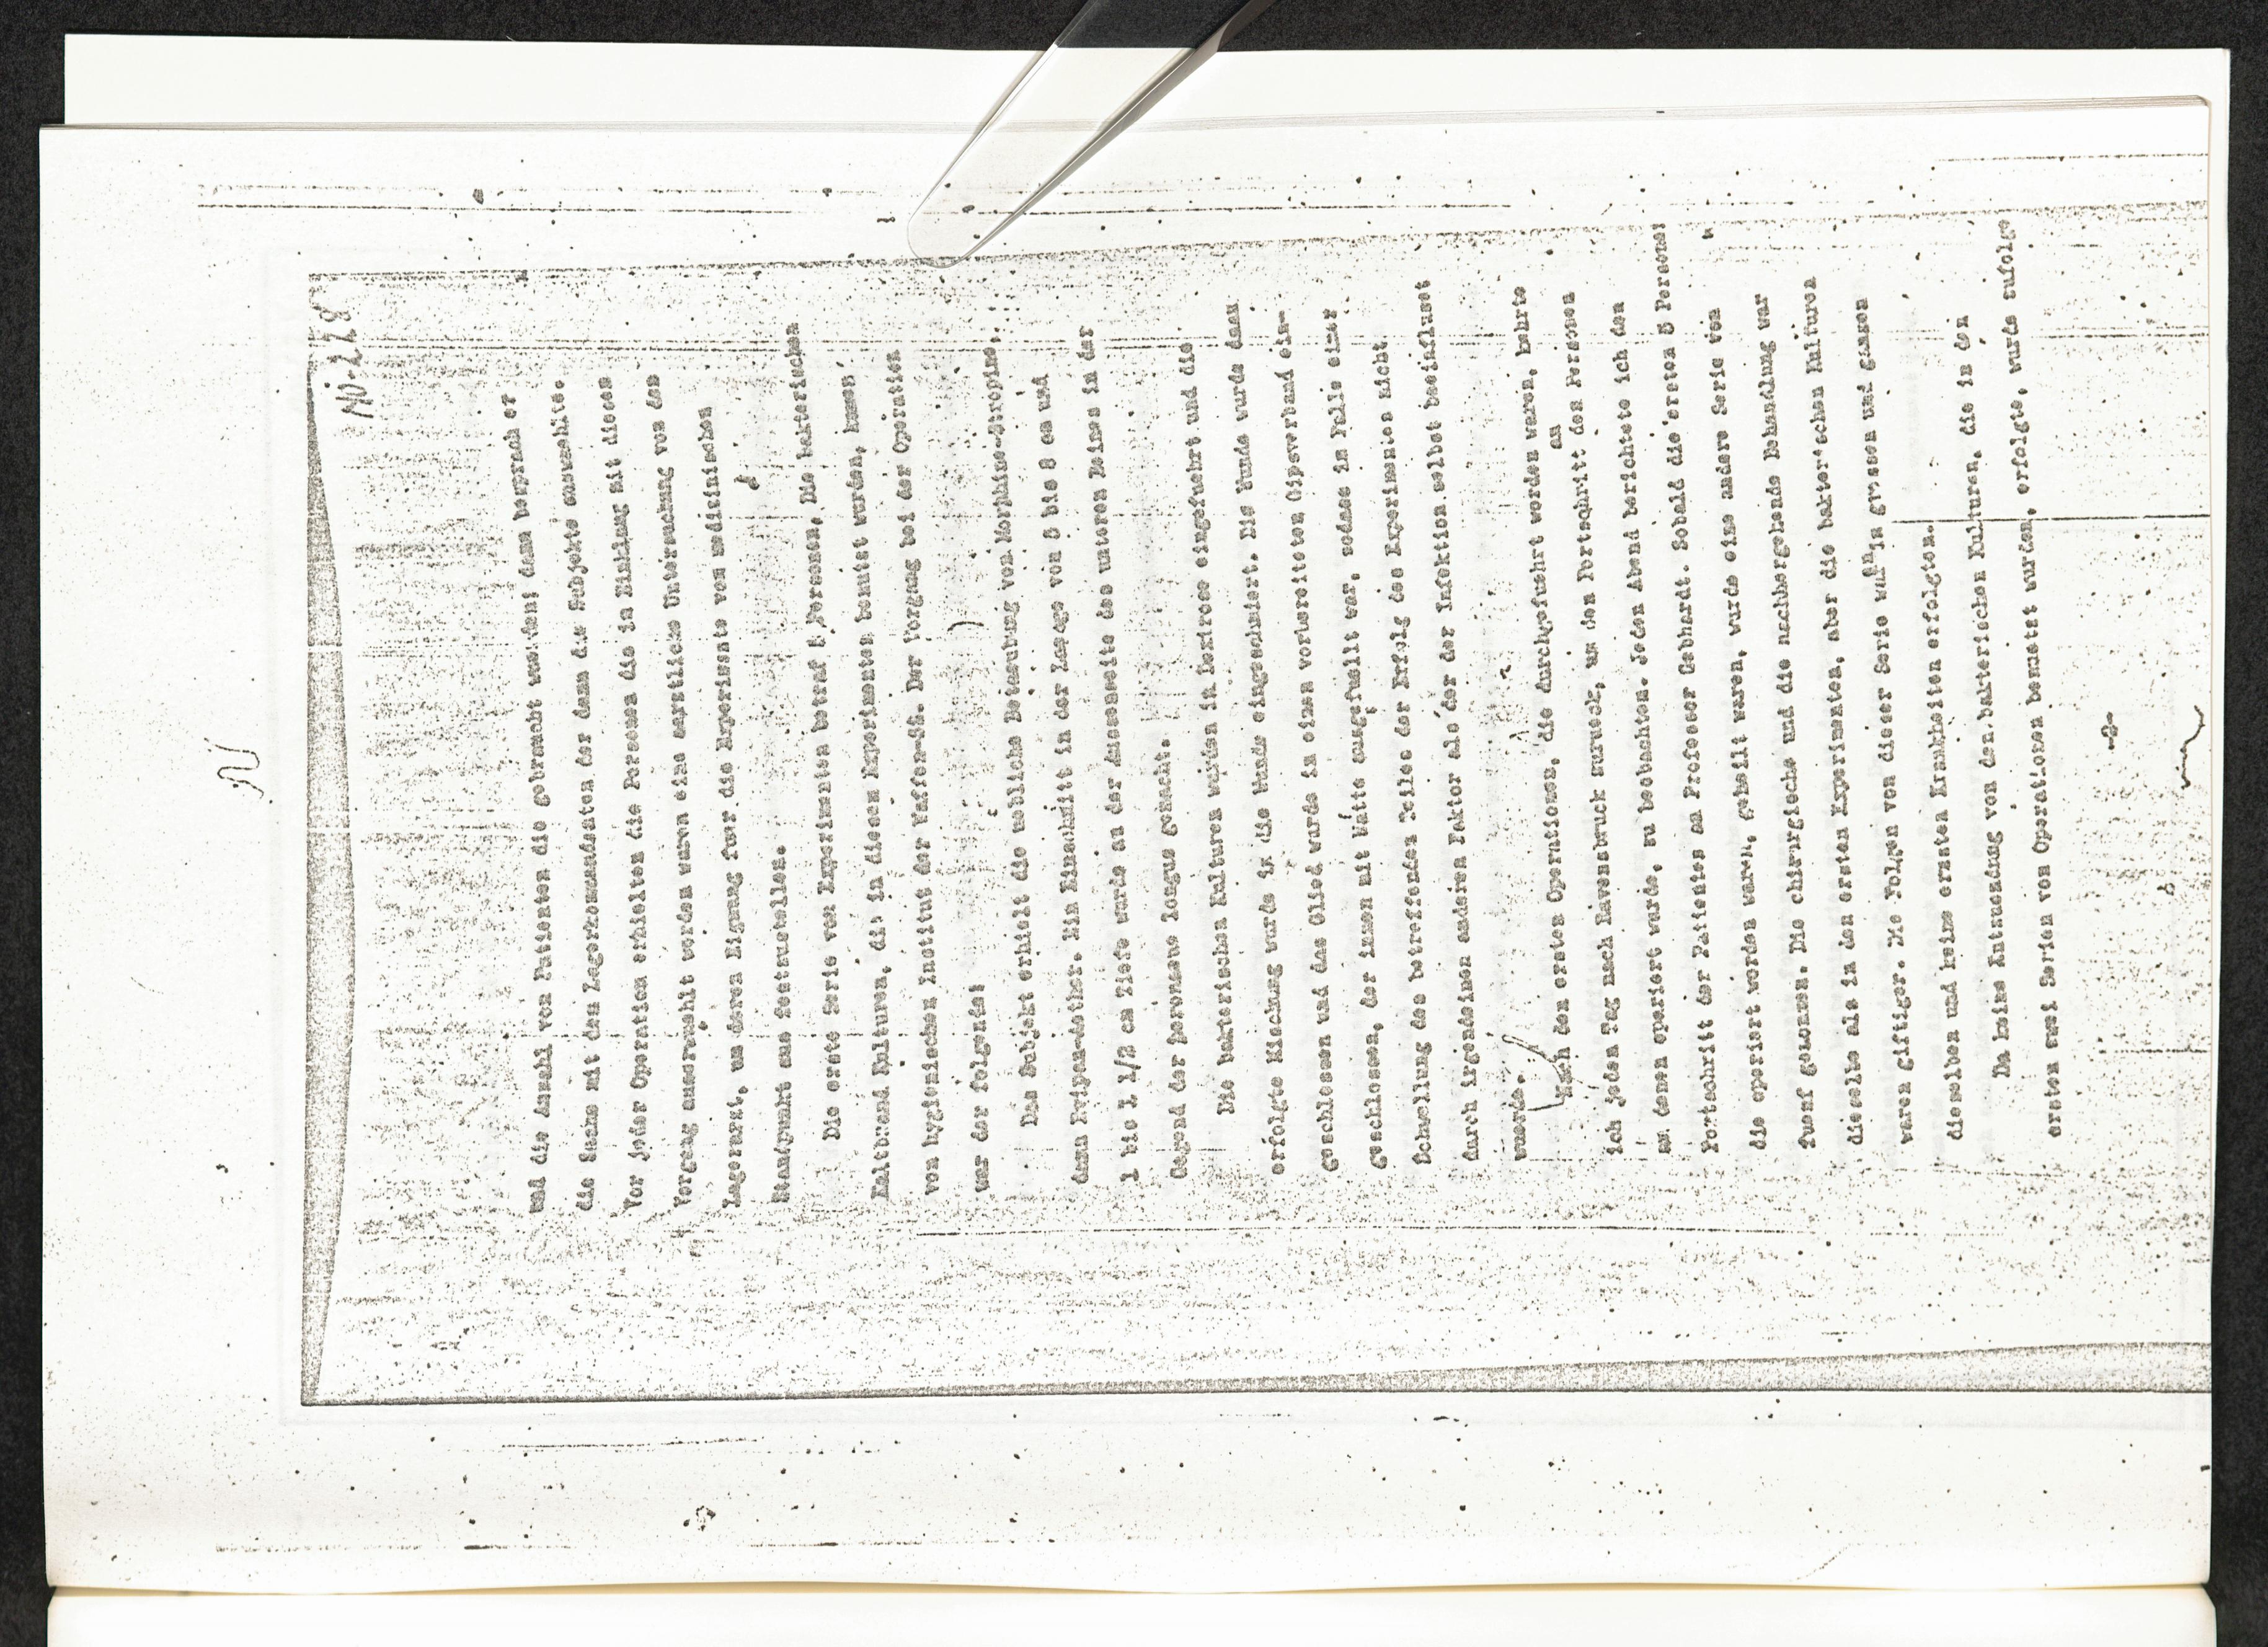 NO-228
und die Anzahl von Patienten die gebraucht wurden; dann besprach er
die Sache mit dem Lagerkommandanten der dann die Subjekte auswaehlte.
Vor jeder Operation erhielten die Personen die in Einklang mit diesem
Vorgang auserwaehlt worden waren eine aerztliche Untersuchung von dem
Lagerarzt, um deren Eignung fuer die Experimente vom medizinischen
Standpunkt aus festzustellen.
Die erste Serie von Experimenten betraf 5 Personen, Die bakterischen
Kaltbrand Kulturen, die in diesen Experimenten benutzt wurden, kamen
vom hygienischen Institut der Waffen-SS. Der Vorgang bei der Operation
war der folgende:
Das Subjekt erhielt die uebliche Betaeubung von Morphine-Atropine,
dann Evipan-Aether. Ein Einschnitt in der Laenge von 5 bis 8 cm und
1 bis 1 1/2 cm Tiefe wurde an der Aussenseite des unteren Beines in der
Gegend der peronaeus longus gemacht.
Die bakterischen Kulturen wurden in Dextrose eingefuehrt und die
erfolgte Mischung wurde in die Wunde eingeschmiert. Die Wunde wurde dann
geschlossen und das Glied wurde in einen vorbereiteten Gipsverband ein-
geschlossen, der innen mit Watte ausgefuellt war, sodass im Falle einer
Schwellung des betreffenden Teiles der Erfolg des Experimentes nicht
durch irgendeinen anderen Faktor als der der Infektion selbst beeinflusst
wuerde.
Nach den ersten Operationen, die durchgefuehrt worden waren, kehrte
ich jeden Tag nach Ravensbruck zurueck, um den Fortschritt den Personen
an
an denen operiert wurde, zu beobachten. Jeden Abend berichtete ich den
Fortschritt der Patienten an Professor Gebhardt. Sobald die ersten 5 Personen
die operiert worden waren, geheilt waren, wurde eine andere Serie von
fuenf genommen. Die chirurgische und die nachhergehende Behandlung war
dieselbe als in den ersten Experimenten, aber die bakterischen Kulturen
waren giftiger. Die Folgen von dieser Serie waren in grossen und ganzen
dieselben und keine ernsten Krankheiten erfolgten.
Da keine Entzuendung von den bakterischen Kulturen, die in den
ersten zwei Serien von Operationen benuetzt wurden, erfolgte, wurde zufolge